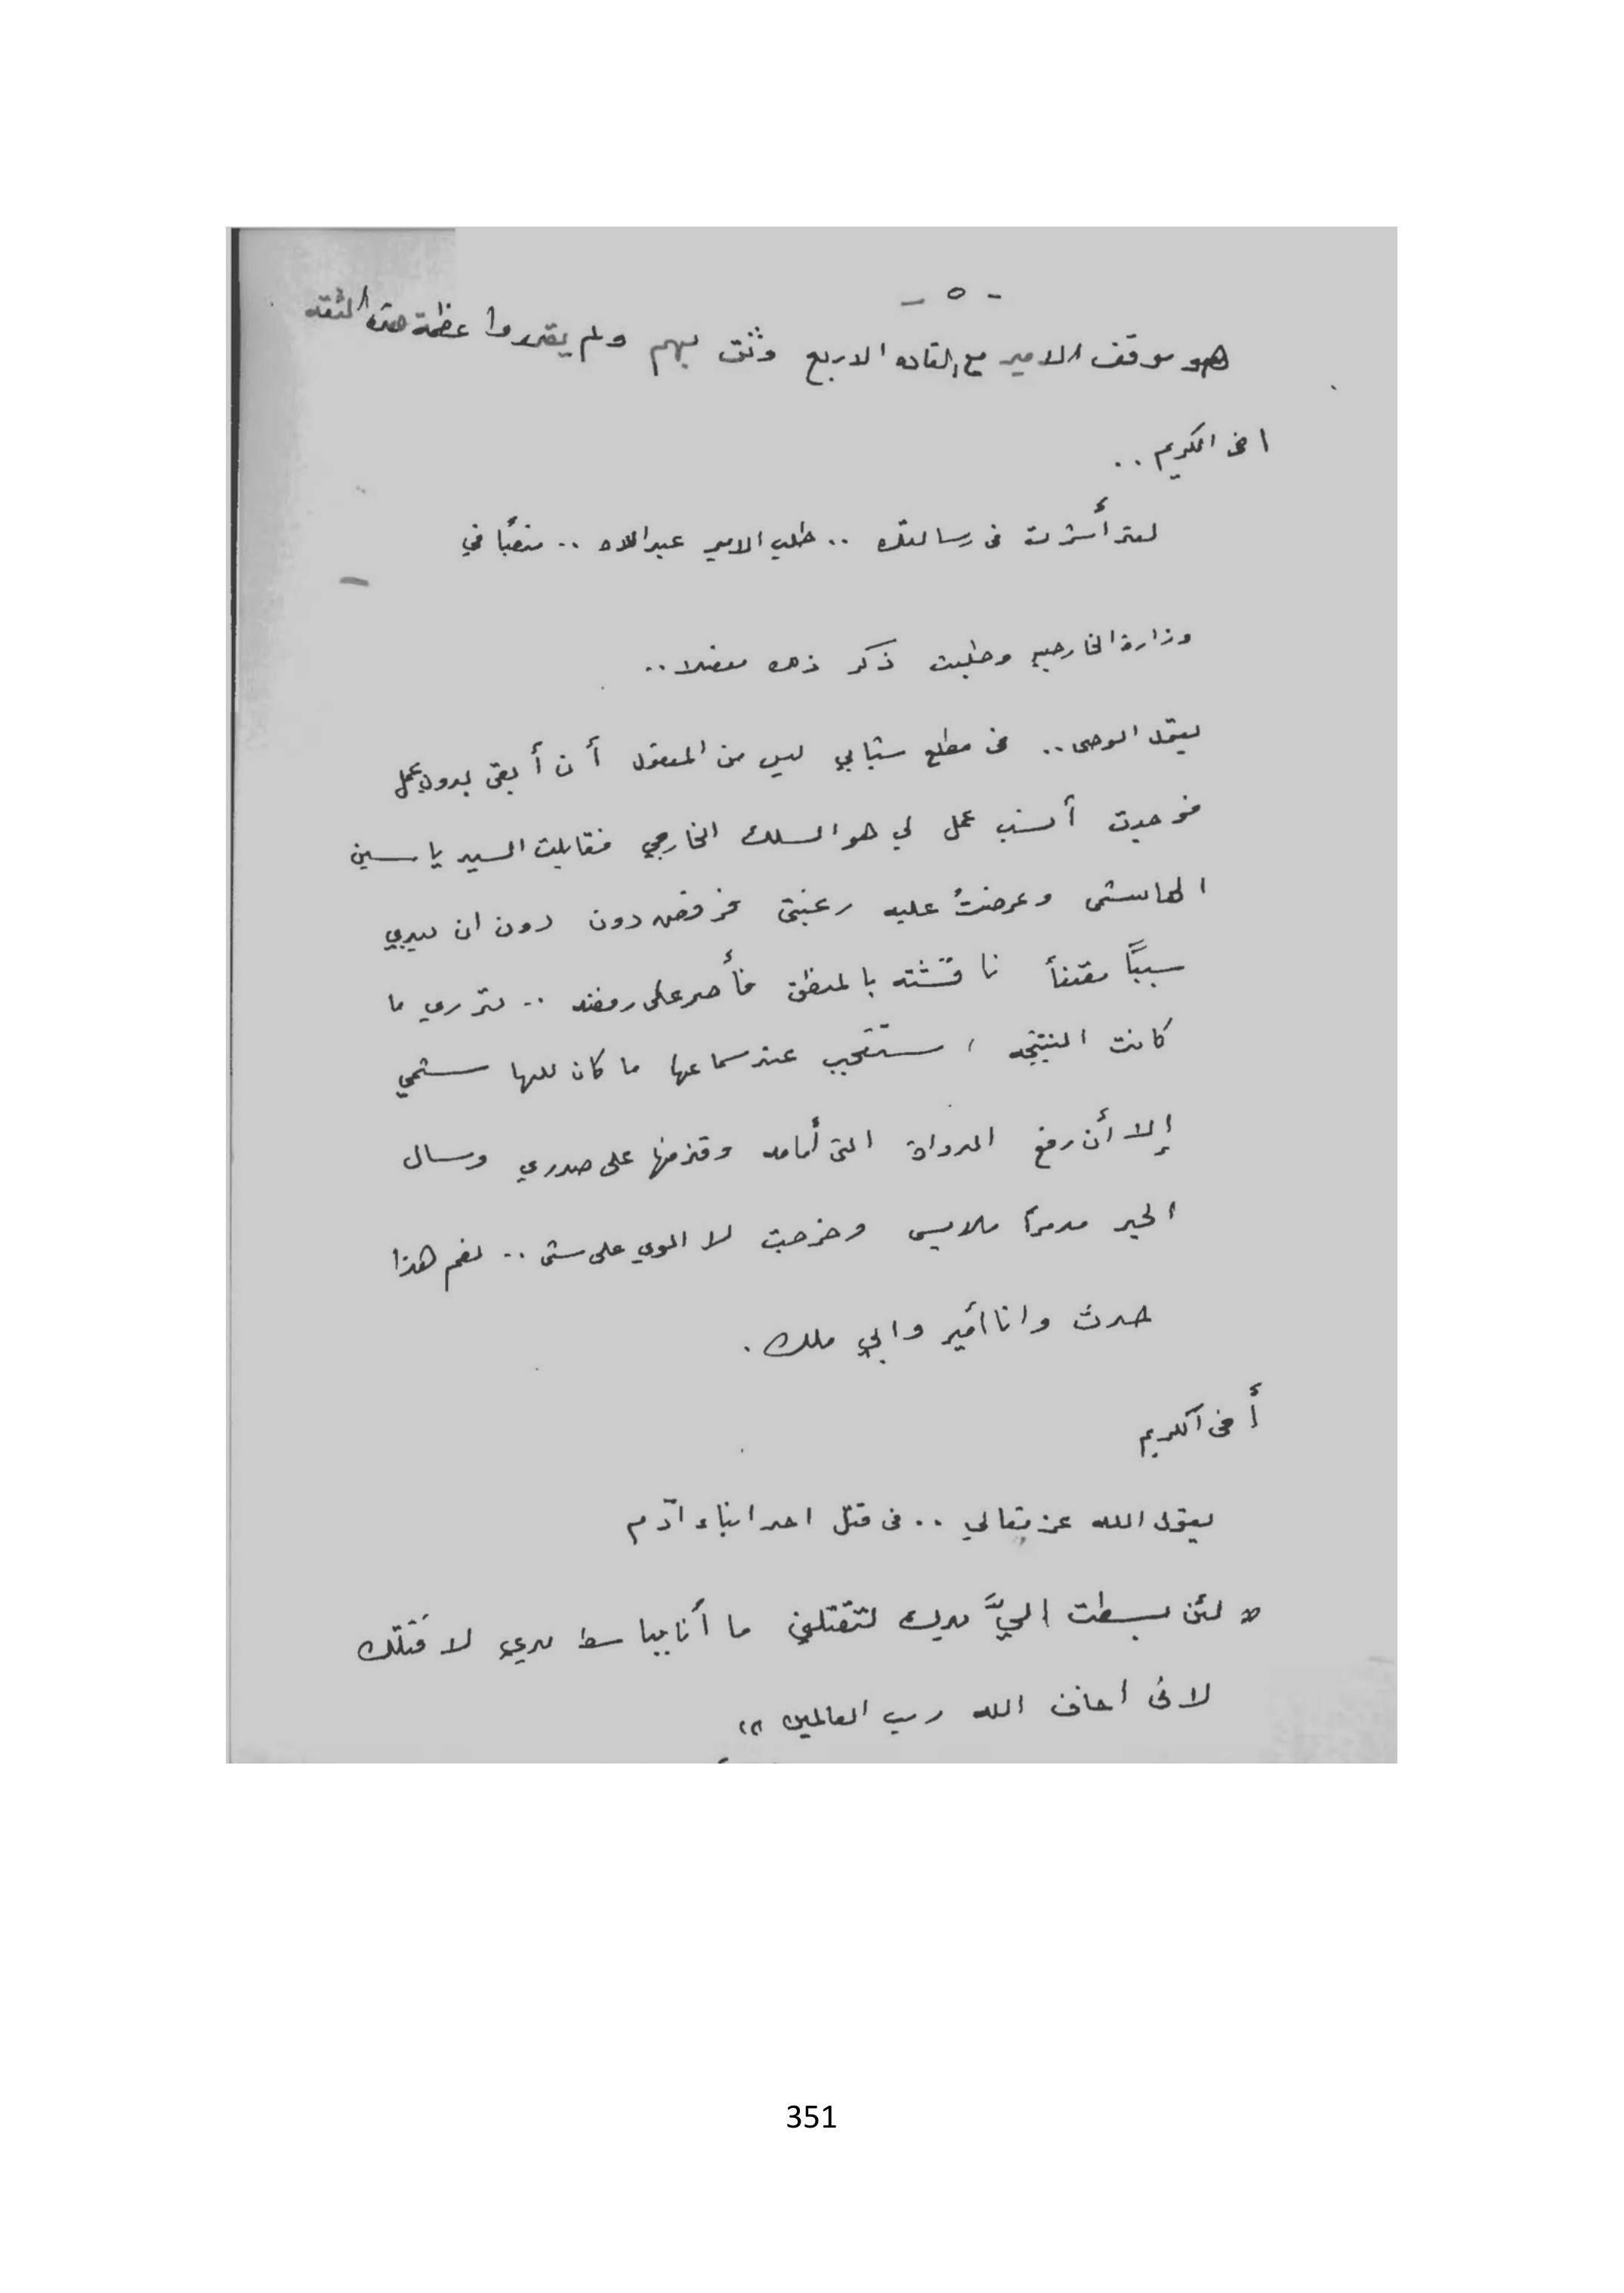 - ٥ -
هو موقف الامير مع القاده الاربع وثق بهم ولم يقدروا عظمة هذه الثقه
اخى الكريم ..
لقد أشرت فى رسالتك .. طلب الامير عبدالاله .. منصبًا في
وزارة الخارجيه وطلبت ذكر ذلك مفصلا ..
يقول الوصى .. فى مطلع شبابي ليس من المعقول أن أبقى بدون عمل
فوجدت أنسب عمل لي هو السلك الخارجي فقابلت السيد ياسين
الهاشمى وعرضتُ عليه رغبتى فرفض دون دون ان يبدي
سببًا مقنعاً ناقشته بالمنطق فأصر على رفضه .. تدري ما
كانت النتيجه ، ستتعجب عند سماعها ما كان للهاشمي
إلا أن رفع الدواة التى أمامه وقذفها على صدري وسال
الحبر مدمرًا ملابسى وخرجت لا الوي على شئ .. نعم هذا
حدث وانا أمير وابي ملك .
أخى الكريم
يقول الله عز تعالي .. فى قتل احد ابناء آدم
" لئن بسطت اليَّ يديك لتقتلني ما أنا بباسط يدي لاقتلك
لانى أخاف الله رب العالمين "
351